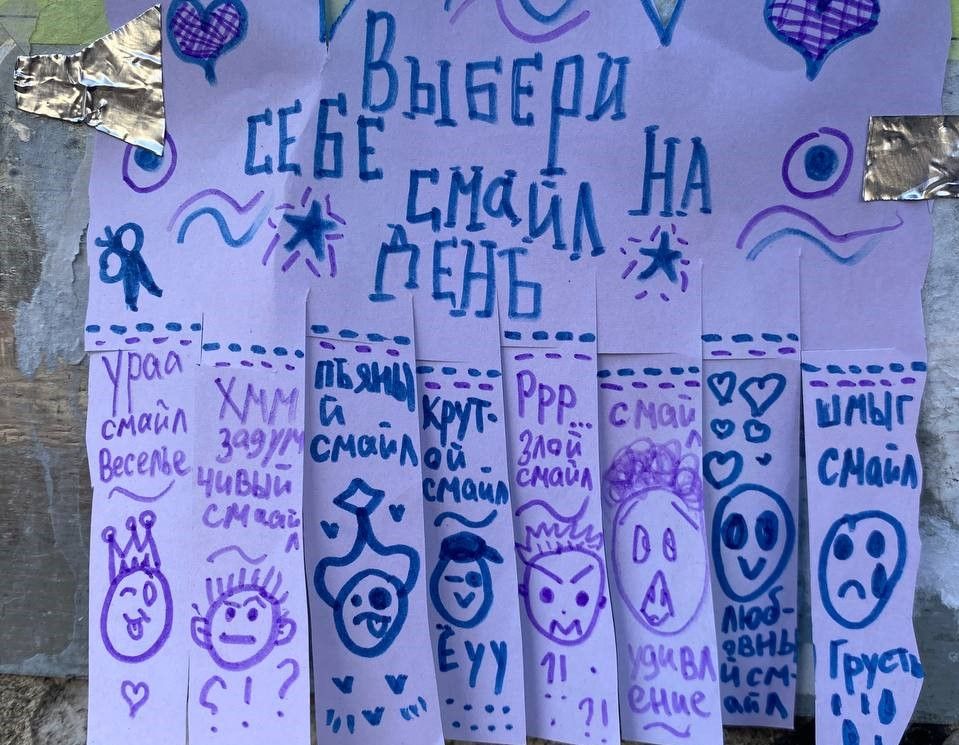 Выбери
себе
смайл на
день
ураа
смайл
Веселье
Хмм
задум
чивый
смаай
л
пьяны
й
смайл
Крут-
ой
смайл
Ёуу
Ррр...
злой
смайл
?! .
. ?!
смай
л
удивл
ение
люб-
овны
й см-
айл
шмыг
смайл
Грусть